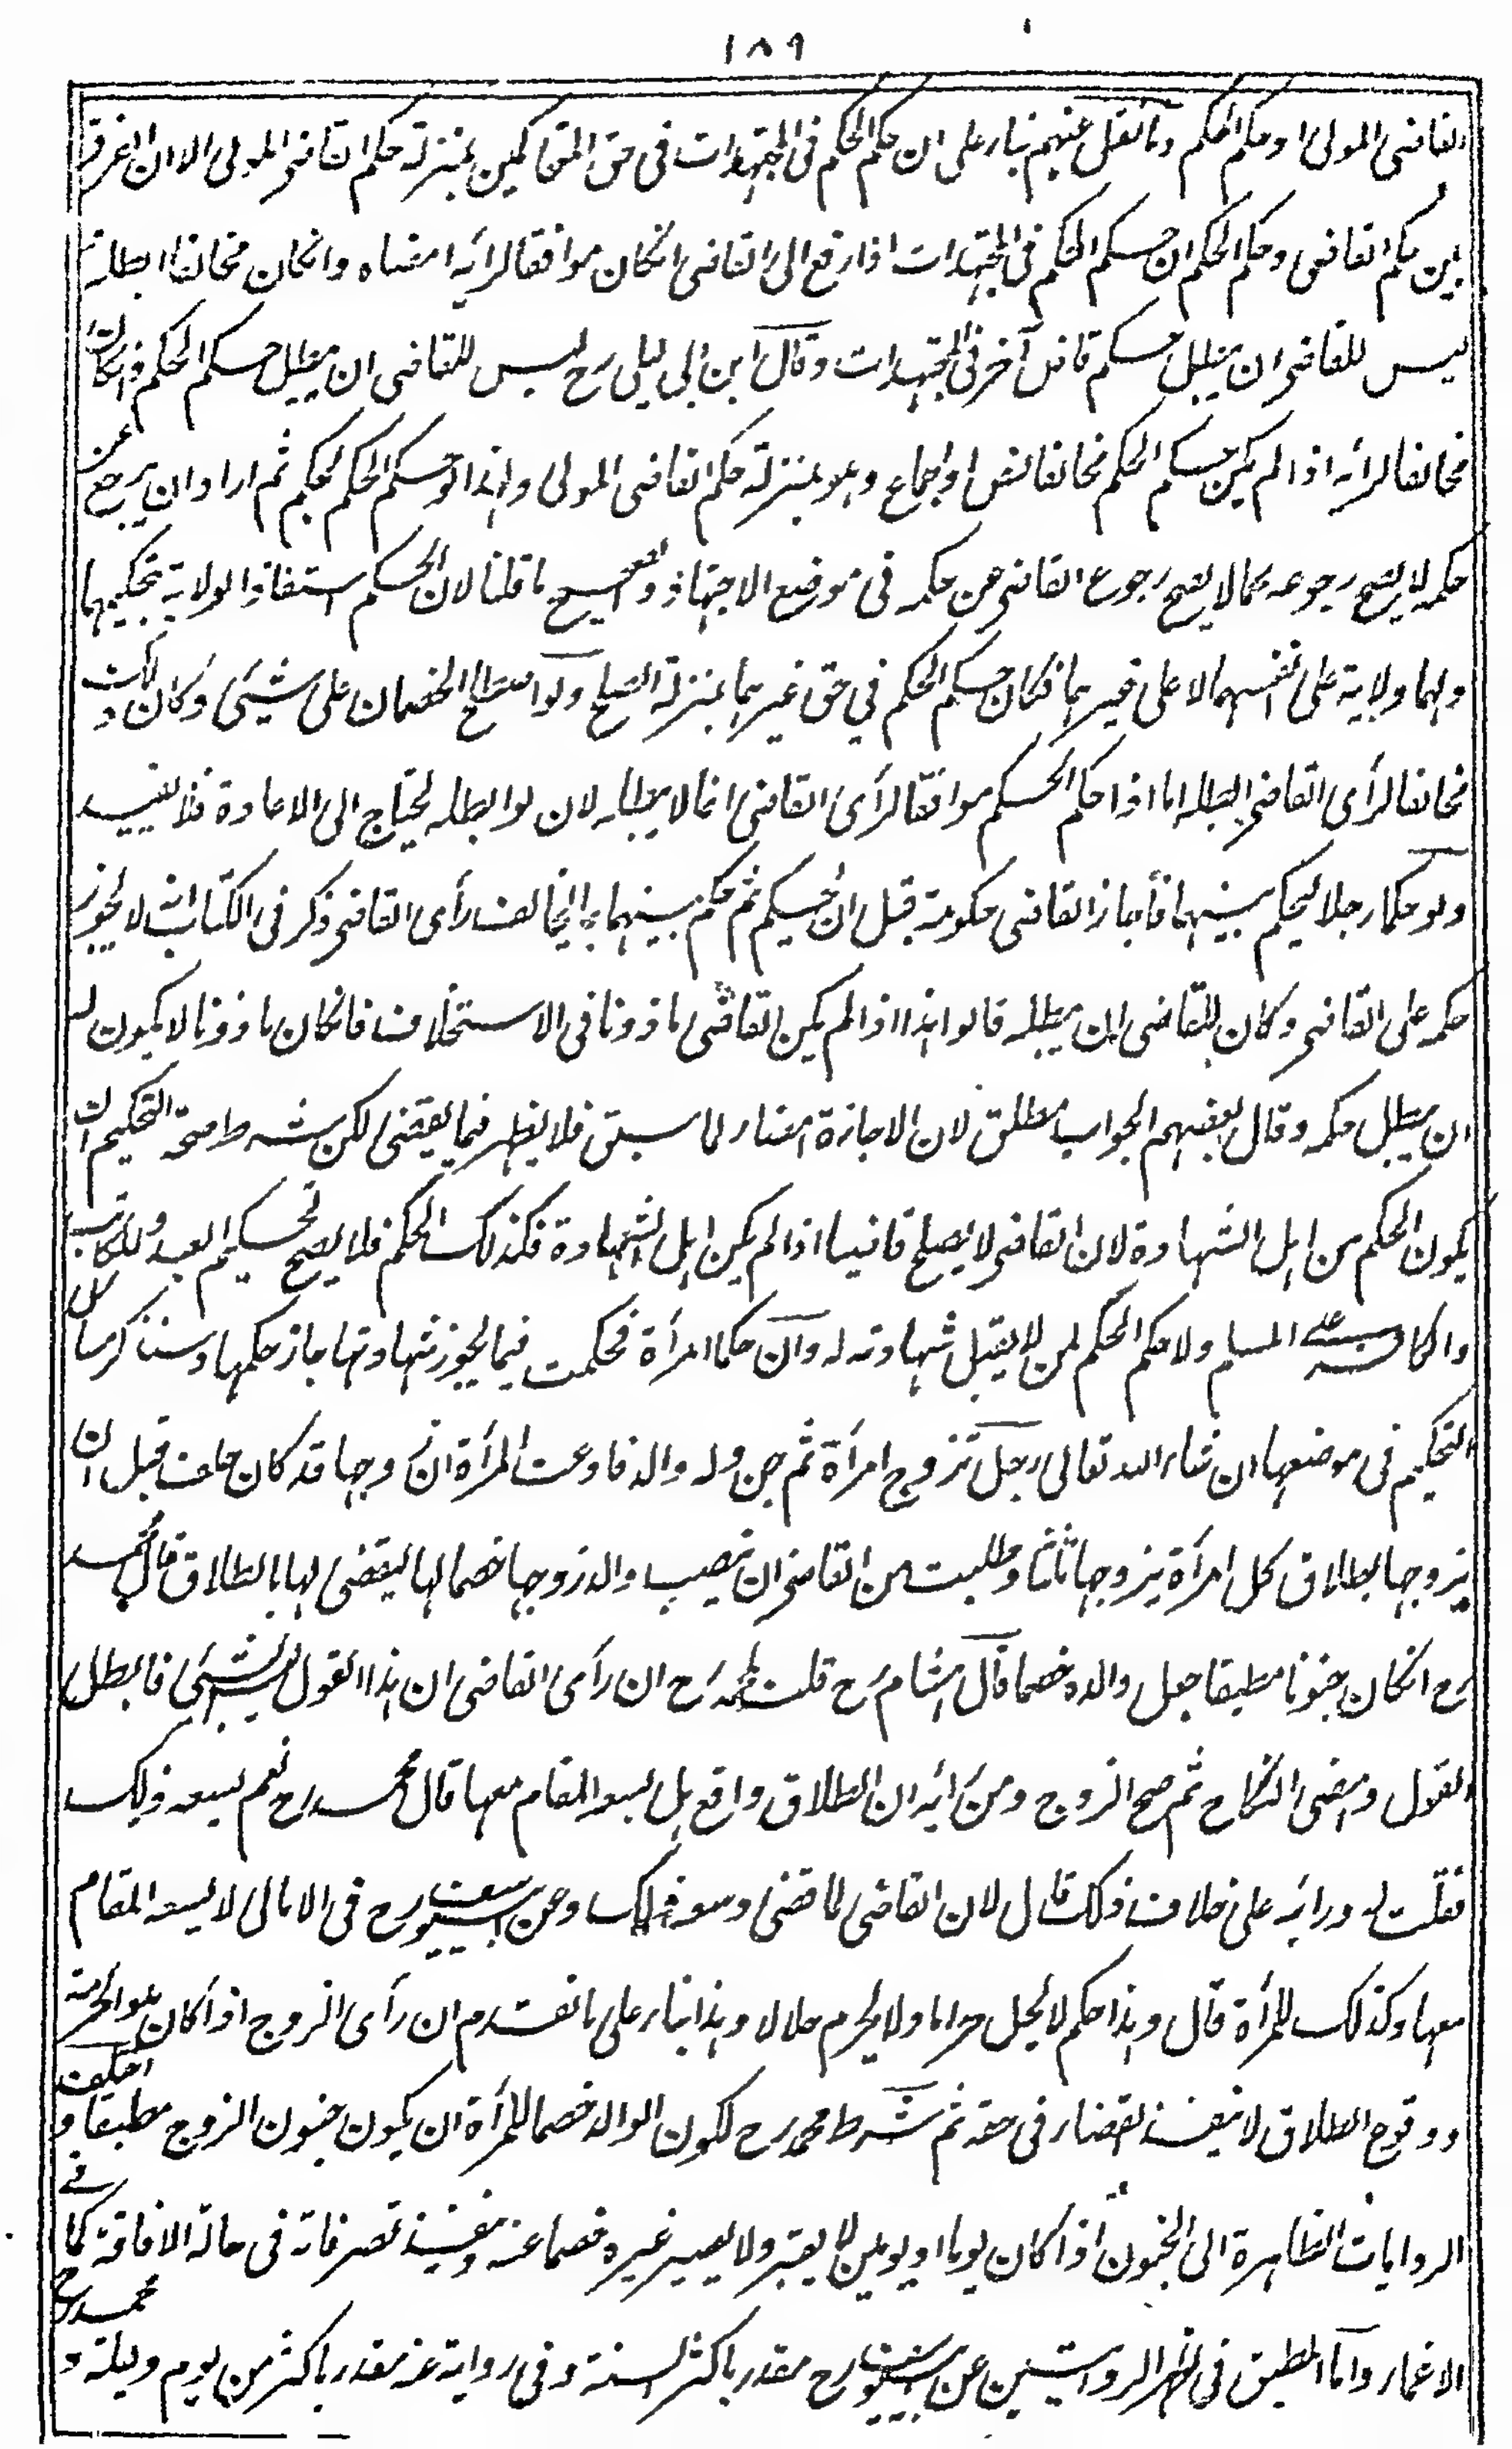 ١٨٩
القاضى المولى او حكم الحكم وما نقل عنهم بناء على ان حكم الحكم فى المجتهدات فى حق المتحاكمين بمنزلة حكم القاضى المولى الا ان الفرق
بين حكم القاضى وحكم الحكم ان حكم الحكم فى المجتهدات اذا رفع الى القاضى انكان موافقا لرأيه امضاه وانكان مخالفا ابطله
ليس للقاضى ان يبطل حكم قاض آخر فى المجتهدات وقال ابن ابى ليلى رح ليس للقاضى ان يبطل حكم الحكم وانكان
مخالفا لرأيه اذا لم يكن حكم الحكم مخالفا لنص او اجماع وهو بمنزلة حكم القاضى المولى ولهذا لو حكم الحكم بحكم ثم اراد ان يرجع عن
حكمه لا يصح رجوعه كما لا يصح رجوع القاضى عن حكمه فى موضع الاجتهاد والصحيح ما قلنا لان الحكم استفاد الولاية بتحكيمهما
ولهما ولاية على انفسهما لا على غيرهما فكان حكم الحكم فى حق غيرهما بمنزلة الصلح ولو اصطلح الخصمان على شيئ وكان ذلك
مخالفا لرأى القاضى ابطله اما اذا حكم الحكم موافقا لرأى القاضى انما لا يبطله لان لو ابطله يحتاج الى الاعادة فلا يفيد
ولو حكما رجلا ليحكم بينهما فأجاز القاضى حكومته قبل ان يحكم ثم حكم بينهما بما يخالف رأى القاضى ذكر فى الكتاب انه لا يجوز
حكمه على القاضى وكان للقاضى ان يبطله قالوا هذا اذا لم يكن القاضى ماذونا فى الاستخلاف فانكان ماذونا لا يكون له
ان يبطل حكمه وقال بعضهم الجواب مطلق لان الاجازة امضاء لما سبق فلا يظهر فيما يقتضى لكن شرط صحة التحكيم ان
يكون الحكم من اهل الشهادة لان القاضى لا يصلح قاضيا اذا لم يكن اهل الشهادة فكذلك الحكم فلا يصح تحكيم العبد والمكاتب
والكافر على المسلم ولا حكم الحكم لمن لا يقبل شهادته له وان حكما امرأة فحكمت فيما يجوز شهادتها جاز حكمها وسنذكر مسائل
التحكيم فى موضعها ان شاء الله تعالى رجل تزوج امرأة ثم جن وله والد فادعت المرأة ان زوجها قد كان حلف قبل ان
يتزوجها بطلاق كل امرأة يتزوجها ثلثا وطلبت من القاضى ان ينصب والد زوجها خصما لها ليقضى لها بالطلاق قال محمد
رح انكان جنونا مطبقا جعل والده خصما قال هشام رح قلت لمحمد رح ان رأى القاضى ان هذا القول ليس بشيئ فابطل
القول وامضى النكاح ثم صح الزوج ومن رأيه ان الطلاق واقع هل يسعه المقام معها قال محمد رح نعم يسعه ذلك
فقلت له ورأيه على خلاف ذلك قال لان القاضى لما قضى وسعه ذلك وعن ابى يوسف رح فى الامالى لا يسعه المقام
معها وكذلك المرأة قال وهذا حكم لا يحل حراما ولا يحرم حلالا وهذا بناء على ما تقدم ان رأى الزوج اذا كان هو الحرمة
ووقوع الطلاق لا ينفذ القضاء فى حقه ثم شرط محمد رح لكون الوالد خصما للمرأة ان يكون جنون الزوج مطبقا واختلفت
الروايات الظاهرة الى الجنون اذا كان يوما او يومين لا يعتبر ولا يصير غيره خصما عنه وينفذ تصرفاته فى حالة الافاقة كما فى
الاغماء واما المطبق فى اظهر الروايتين عن ابى يوسف رح مقدر باكثر السنة وفى رواية عنه مقدر باكثر من يوم وليلة و محمد رح